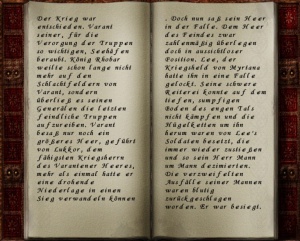 Der Krieg war
entschieden. Varant
seiner, für die
Verorgung der Truppen
so wichtigen, Seehäfen
beraubt. König Rhobar
weilte schon lange nicht
mehr auf den
Schlachtfeldern von
Varant, sondern
überließ es seinen
Generälen die letzten
feindliche Truppen
aufzureiben. Varant
besaß nur noch ein
größeres Heer, geführt
von Lukkor, dem
fähigsten Kriegsherrn
des Varantener Heeres,
mehr als einmal hatte er
eine drohende
Niederlage in einen
Sieg verwandeln können
. Doch nun saß sein Heer
in der Falle. Dem Heer
des Feindes zwar
zahlenmäßig überlegen
doch in aussichtloser
Position. Lee, der
Kriegsheld von Myrtana
hatte ihn in eine Falle
gelockt. Seine schwere
Reiterei konnte auf dem
tiefen, sumpfigen
Boden des engen Tals
nicht kämpfen und die
Hügelketten um ihn
herum waren von Lee's
Soldaten besetzt, die
immer wieder zustießen
und so sein Heer Mann
um Mann dezimierten.
Die verzweifelten
Ausfälle seiner Mannen
waren blutig
zurückgeschlagen
worden. Er war besiegt.